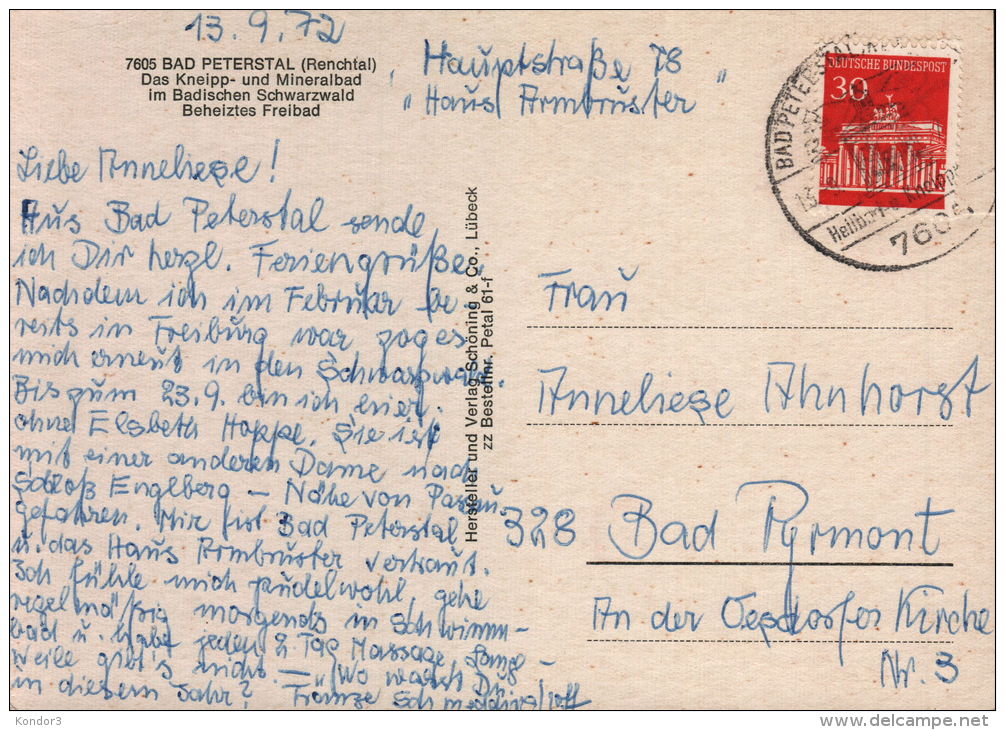 13.9.72
7605 BAD PETERSTAL (Renchtal)
Das Kneipp- und Mineralbad
im Badischen Schwarzwald
Beheiztes Freibad
Hauptstraße 78
"Haus Armbruster"
Liebe Anneliese!
Aus Bad Peterstal sende
ich Dir herzl. Feriengrüße.
Nachdem ich im Februar be-
reits in Freiburg war zog es
mich erneut in den Schwarzwald.
Bis zum 23.9. bin ich hier.
ohne Elsbeth Hoppe. Sie ist
mit einer anderen Dame nach
Schloß Englberg – Nähe von Passau
gefahren. Mir ist Bad Peterstal
u. das Haus Armbruster vertraut.
Ich fühle mich pudelwohl, gehe
regelmäßig morgends in Schwimm-
bad u. habe jeden 2. Tag Massage. Lange-
weile gibt's nicht. – Wo warst Du
in diesem Jahr? Franze
Hersteller und Verlag Schöning & Co., Lübeck
zz Bestellnr. Petal 61-f
DEUTSCHE BUNDESPOST
30
BAD PETERSTAL
13.
Heilbad u. Kneipp
7605
Frau
Anneliese Ahnhorst
328 Bad Pyrmont
An der Oesdorfer Kirche
Nr. 3
Kondor3
www.delcampe.net